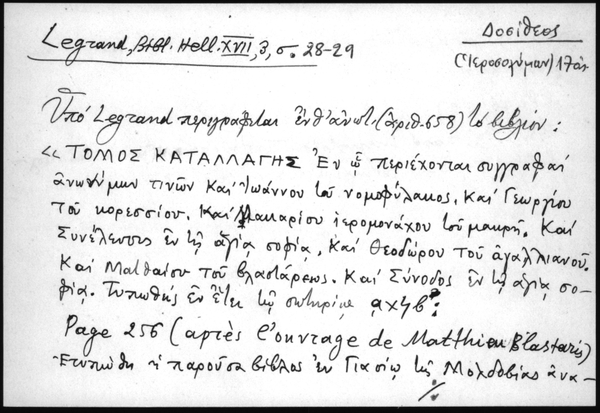 Δοσίθεος
Legrand, Bibl. Hell. XVII, 3, σ. 28-29
(Ἱεροσολύμων) 17 αἰ.
Ὑπό Legrand περιγράφεται ἐνθ' ἀνωτ. (ἀριθ. 658) τό βιβλίον:
«ΤΟΜΟΣ ΚΑΤΑΛΛΑΓΗΣ Ἐν ᾧ περιέχονται συγγραφαί
ἀνωνύμων τινῶν Καί Ἰωάννου τοῦ νομοφύλακος. Καί Γεωργίου
τοῦ κορεσσίου. Καί Μακαρίου ἱερομονάχου τοῦ μακρῆ. Καί
Συνέλευσις ἐν τῇ ἁγίᾳ σοφίᾳ. Καί Θεοδώρου τοῦ ἀγαλλιανοῦ.
Καί Ματθαίου τοῦ βλαστάρεως. Καί Σύνοδος ἐν τῇ ἁγίᾳ σο-
φίᾳ. Τυπωθείς ἐν ἔτει τῆς σωτηρίας ͵αχϟβ:
Page 256 (après l'ouvrage de Matthieu Blastarès)
Ἐτυπώθη ἡ παροῦσα βίβλος ἐν Γιασίῳ τῆς Μολδοβίας ἀνα-
./.